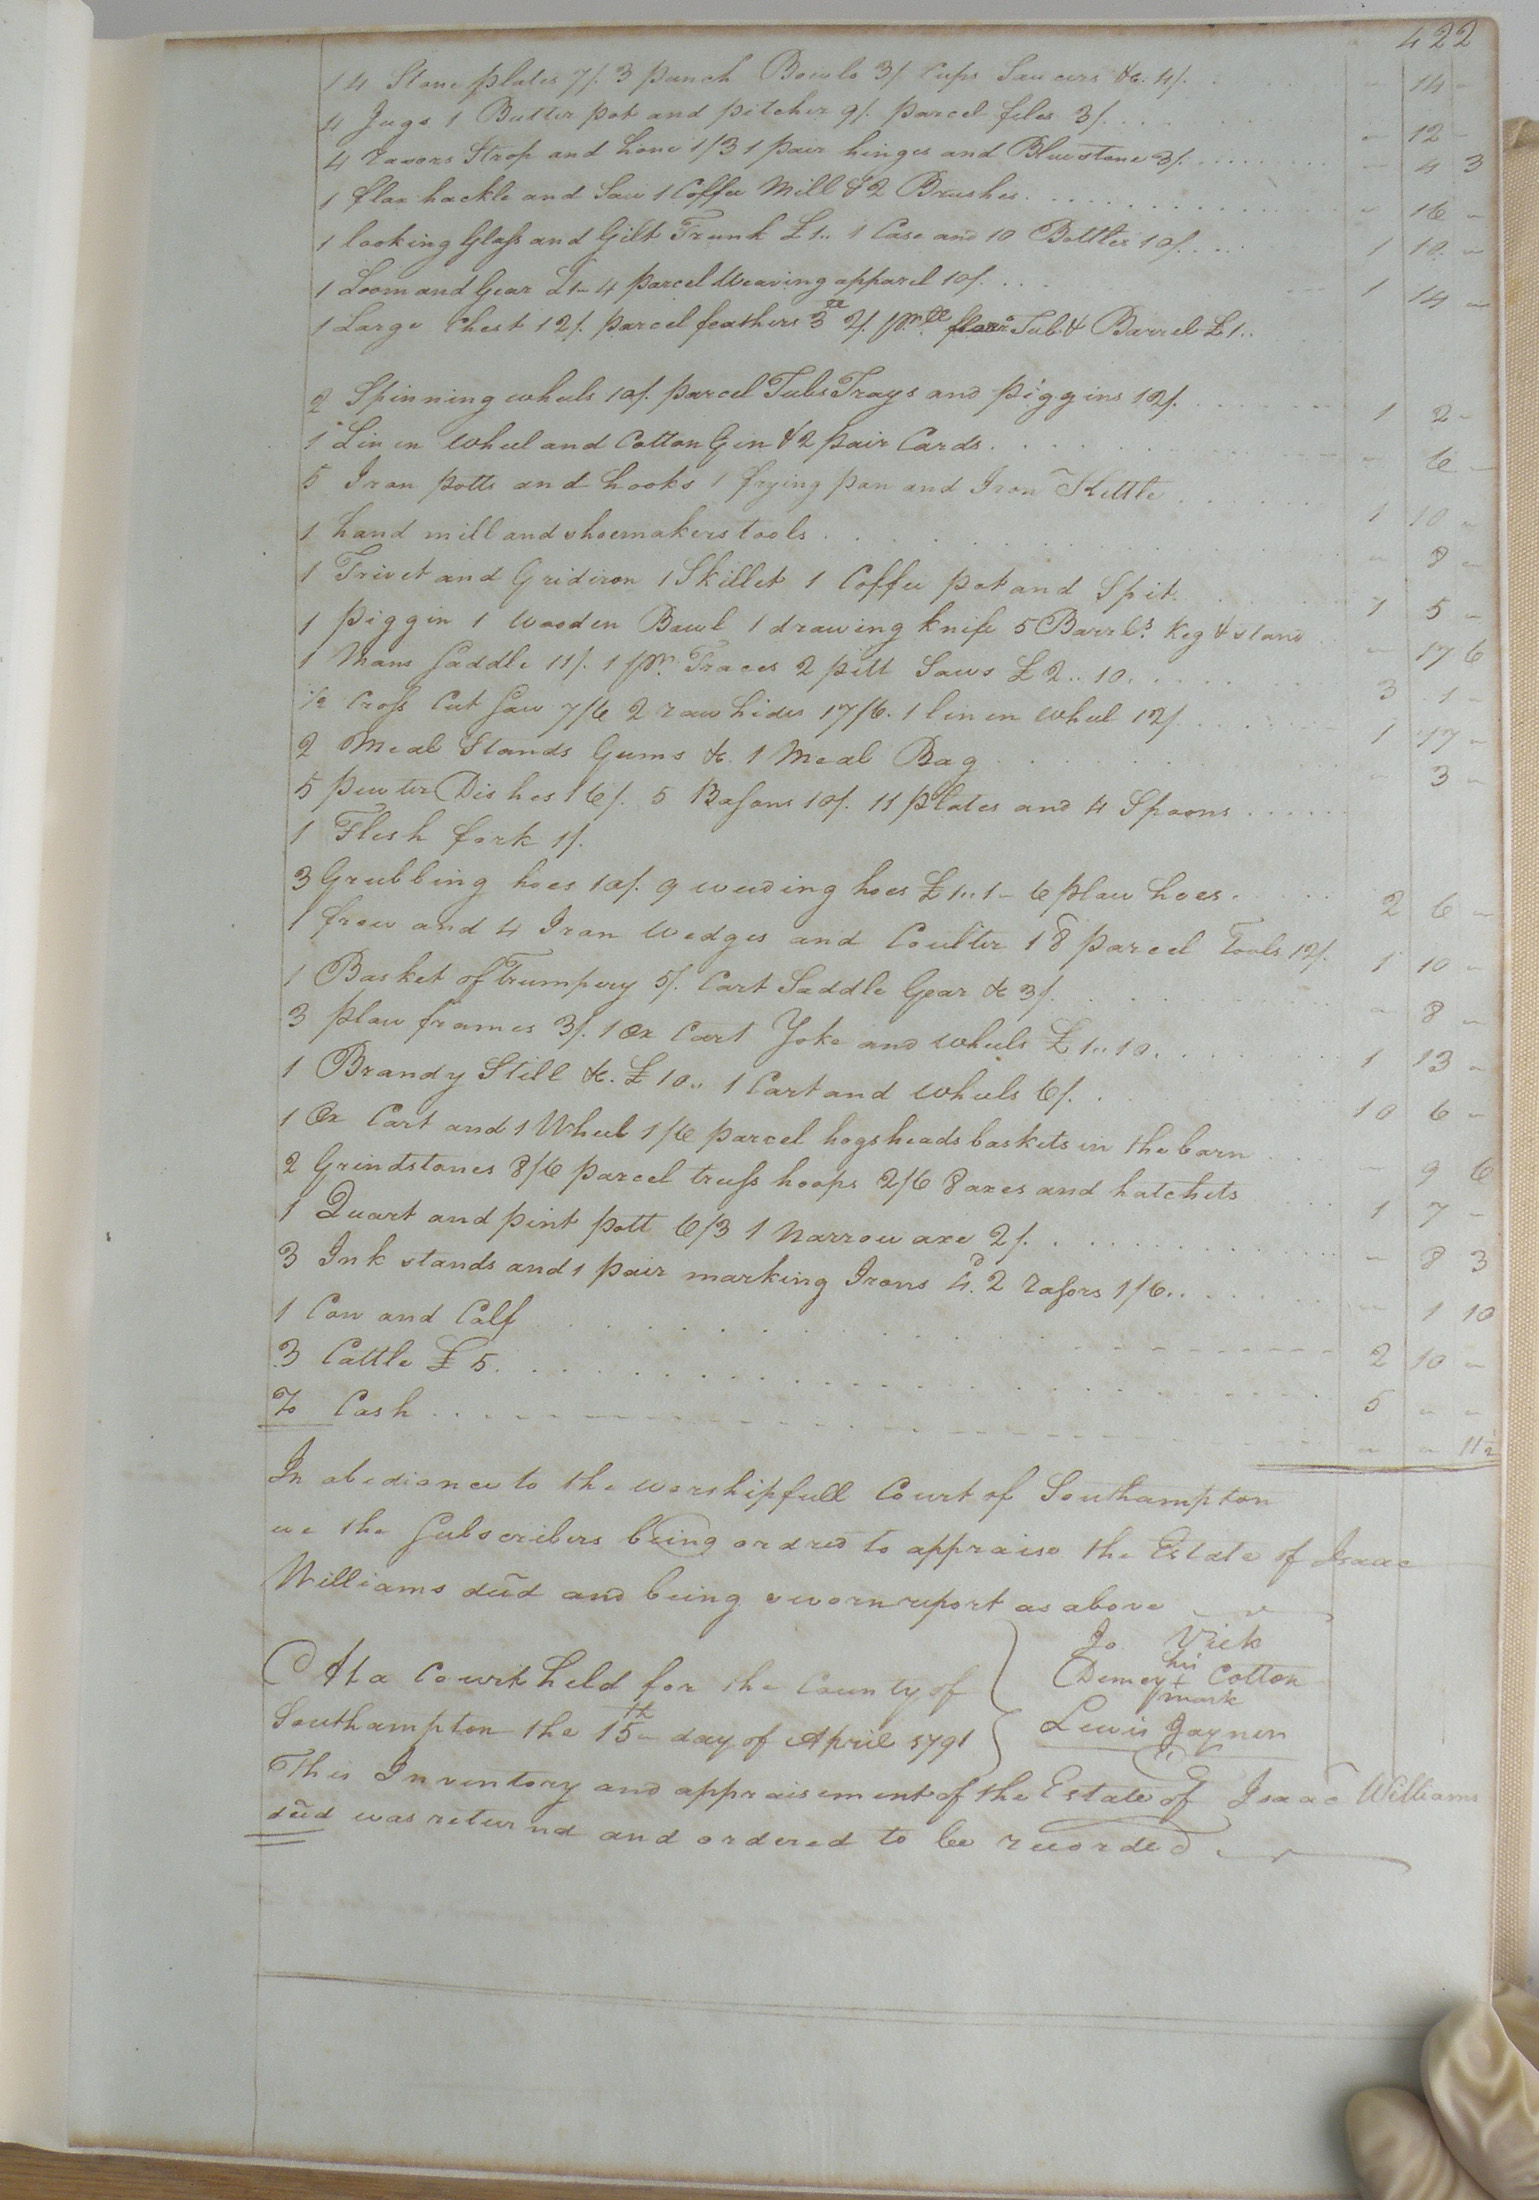 422
14 Stone plates 7/. 3 punch Bowls 3/ Cups Saucers &c. 4/. - 14 -
4 Jugs 1 Butter pot and pitcher 9/. parcel files 3/. - 12 -
4 razors Strop and hone 1/3 1 pair hinges and Bluestone 3/. - 4 3
1 flax hackle and Saw 1 Coffee Mill & 2 Brushes. - 16 -
1 looking Glass and Gilt Trunk £1.. 1 Case and 10 Bottles 10/. 1 10 -
1 Loom and Gear £1-4 parcel Weaving apparel 10/. 1 14 -
1 Large Chest 12/. parcel feathers 2/. Tub & Barrel £1..
2 Spinning wheels 10/. parcel Tubs Trays and piggins 12/. 1 2 -
1 Linen wheel and Cotton Gin & 2 pair Cards. - 6 -
5 Iron potts and hooks 1 frying pan and Iron Kettle 1 10 -
1 hand mill and shoemakers tools - 8 -
1 Trivet and Gridiron 1 Skillet 1 Coffee pot and Spit 1 5 -
1 piggin 1 wooden Bowl 1 drawing knife 5 Barrls. Keg & stand - 17 6
1 Mans Saddle 11/. 1 pr. Traces 2 pitt Saws £2..10. 3 1 -
1/2 Cross Cut Saw 7/6 2 raw hides 17/6. 1 linen wheel 12/ 1 17 -
2 Meal Stands Gums &c. 1 Meal Bag - 3 -
5 pewter Dishes 16/. 5 Basons 10/. 11 plates and 4 Spoons
1 Flesh fork 1/.
3 Grubbing hoes 10/. 9 weeding hoes £1..1- 6 plow hoes. 2 6 -
1 frow and 4 Iron wedges and Coulter 18 parcel Tools 12/. 1 10 -
1 Basket of Trumpery 5/. Cart Saddle Gear &c 3/. - 8 -
3 plow frames 3/. 1 Ox Cart Yoke and wheels £1..10. 1 13 -
1 Brandy Still &c. £10.. 1 Cart and wheels 6/. 10 6 -
1 Ox Cart and 1 Wheel 1/6 parcel hogsheads baskets in the barn - 9 6
2 Grindstones 8/6 parcel truss hoops 2/6 8 axes and hatchets 1 7 -
1 Quart and pint pott 6/3 1 narrow axe 2/. - 8 3
3 Ink stands and 1 pair marking Irons 4d. 2 rasors 1/6. - 1 10
1 Cow and Calf 2 10 -
3 Cattle £5. 5 - -
To Cash - - 11 1/2
In obedience to the worshipfull Court of Southampton
we the Subscribers being ordred to appraise the Estate of Isaac
Williams decd and being sworn report as above
Jo. Vick
Demcy his + mark Cotton
Lewis Joyner
At a Court held for the County of
Southampton the 15th day of April 1791
This Inventory and appraisement of the Estate of Isaac Williams
decd was returnd and ordered to be recorded